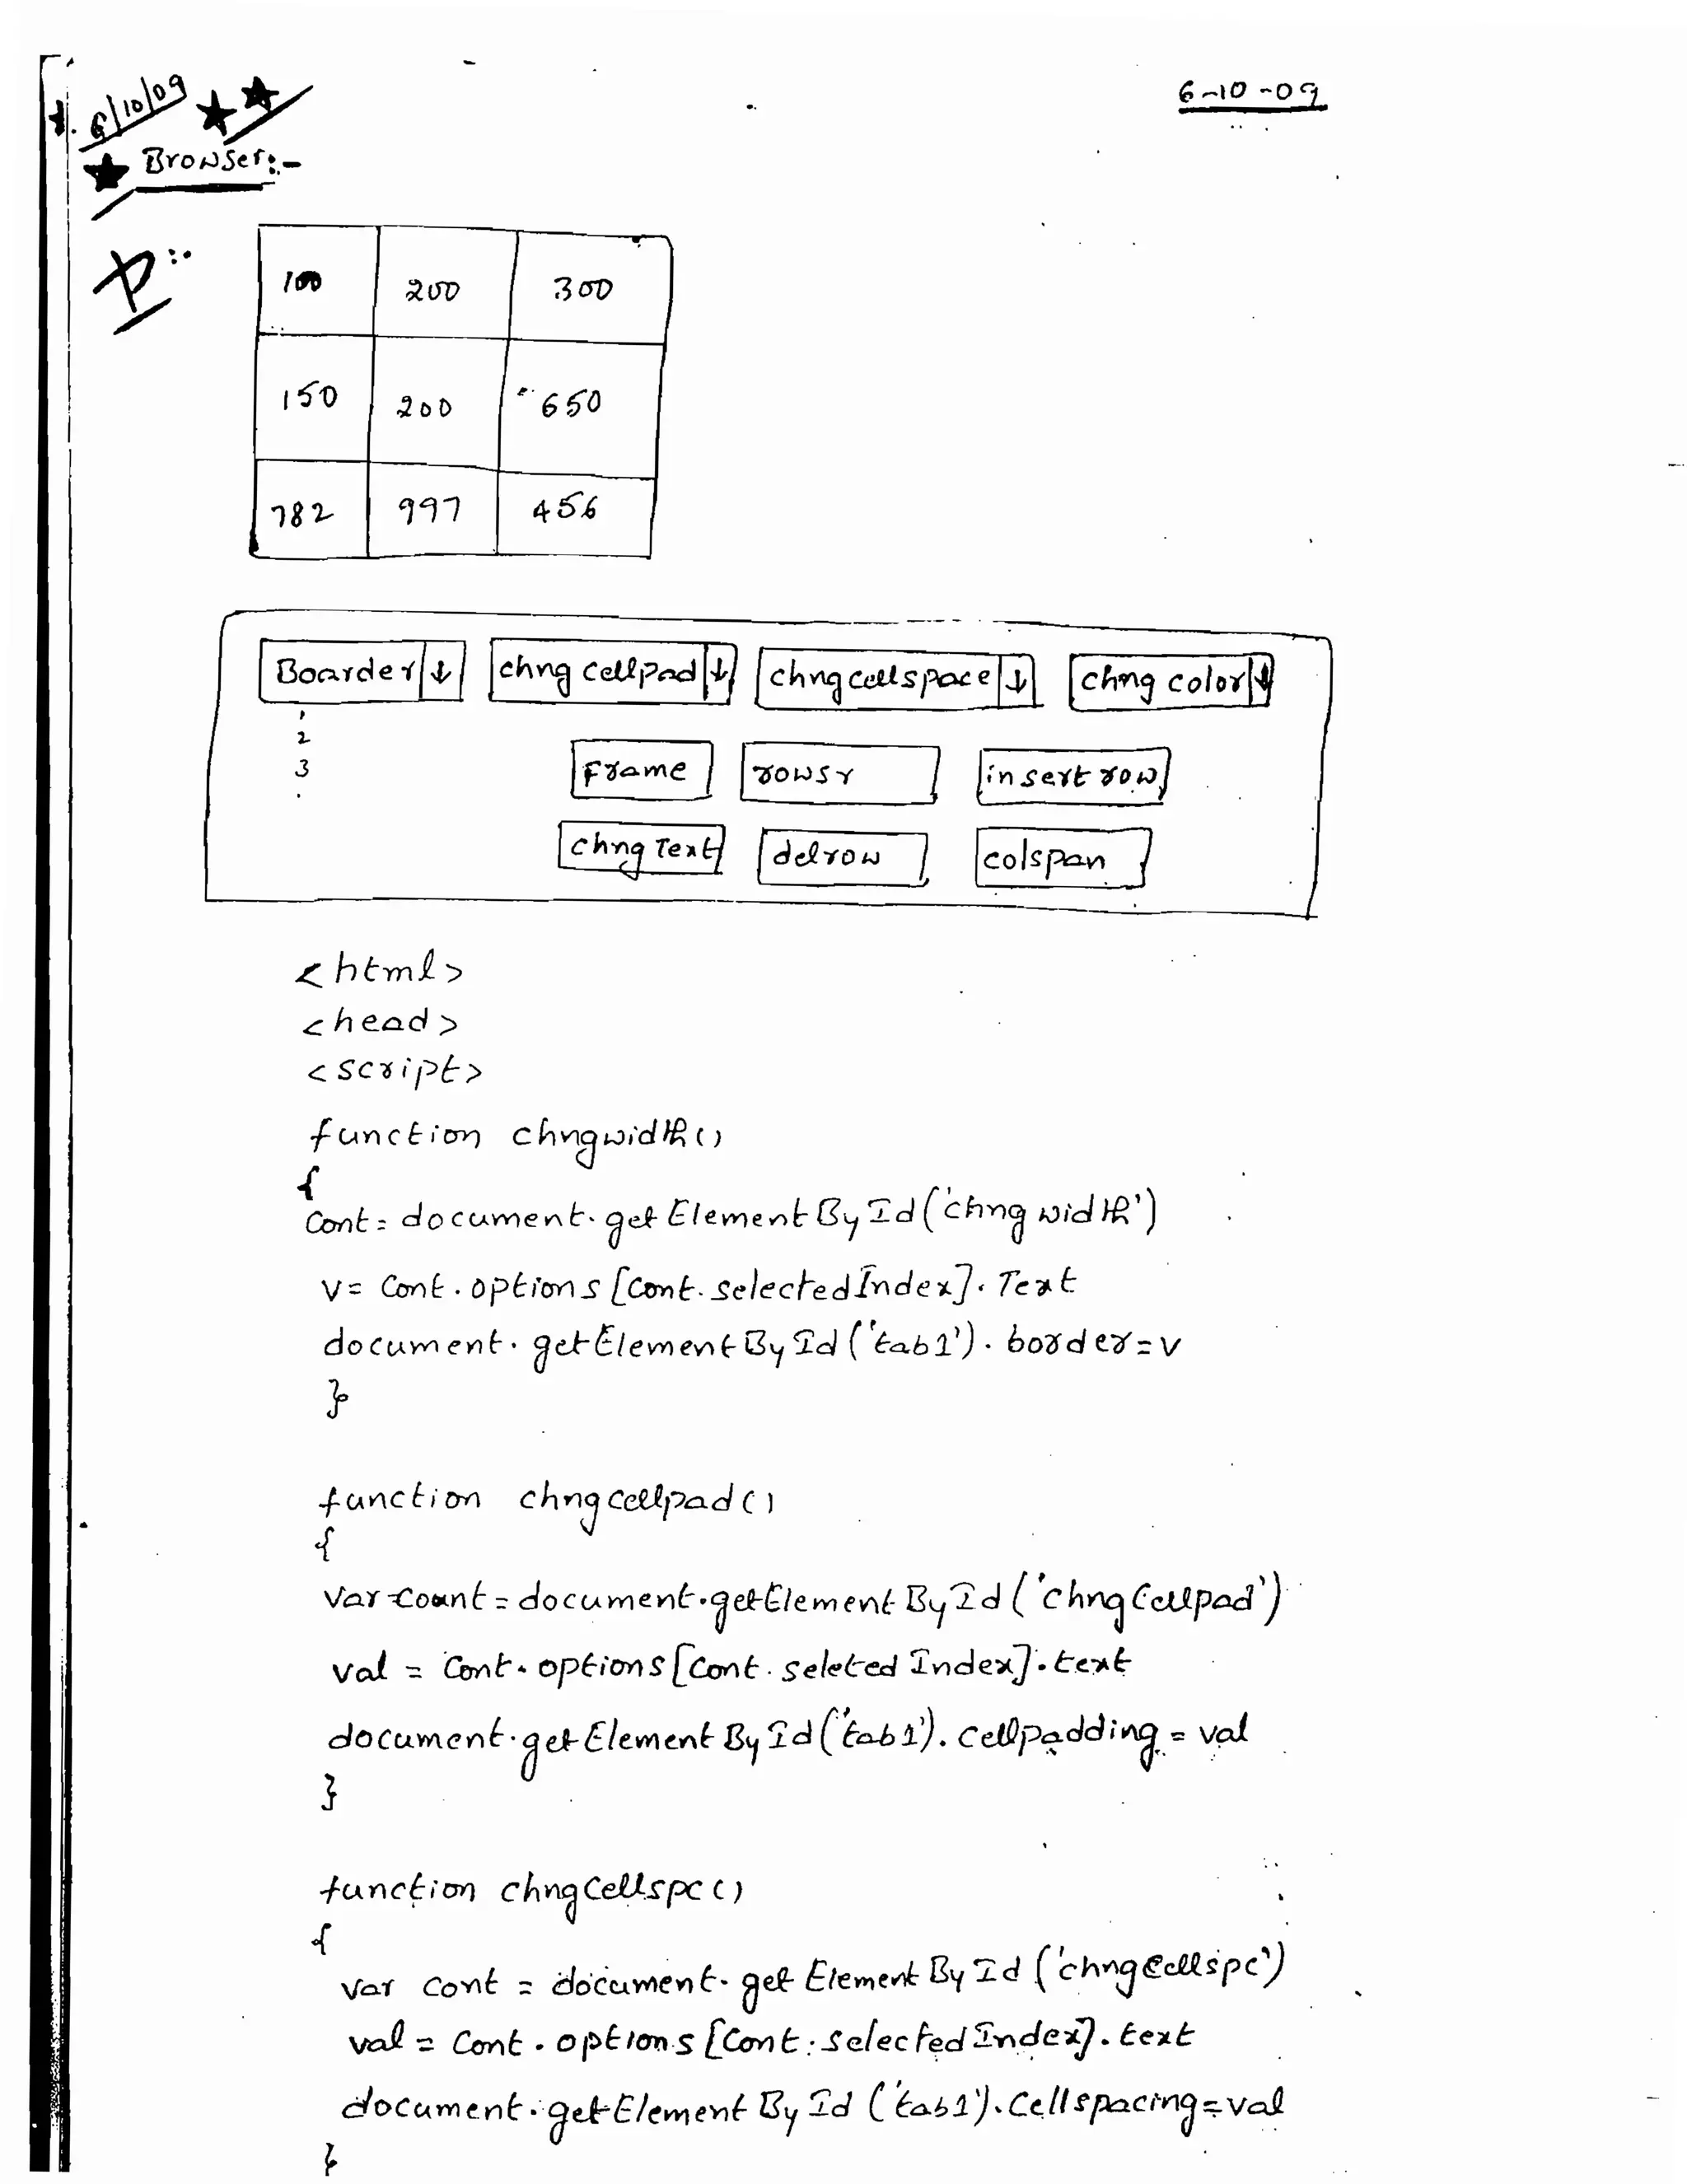 6/10/09
6-10-09
Browser:-
100 200 300
150 200 650
782 997 456
Boarder ↓ chng cellpad ↓ chng cellspace ↓ chng color ↓
2
3
Frame rowsr insert row
chng Text delrow colspan
<html>
<head>
<script>
function chngwidth()
{
Cont = document.getElementById('chng width')
V = Cont.options[Cont.selectedIndex].Text
document.getElementById('tab1').border=v
}
function chngcellpad()
{
Var Count = document.getElementById('chngCellpad')
val = Cont.options[Cont.seleted Index].text
document.getElementById('tab1').cellpadding = val
}
function chngCellspc()
{
Var Cont = document.getElementById('chngCellspc')
val = Cont.options[Cont.selectedIndex].text
document.getElementById('tab1').Cellspacing=val
}